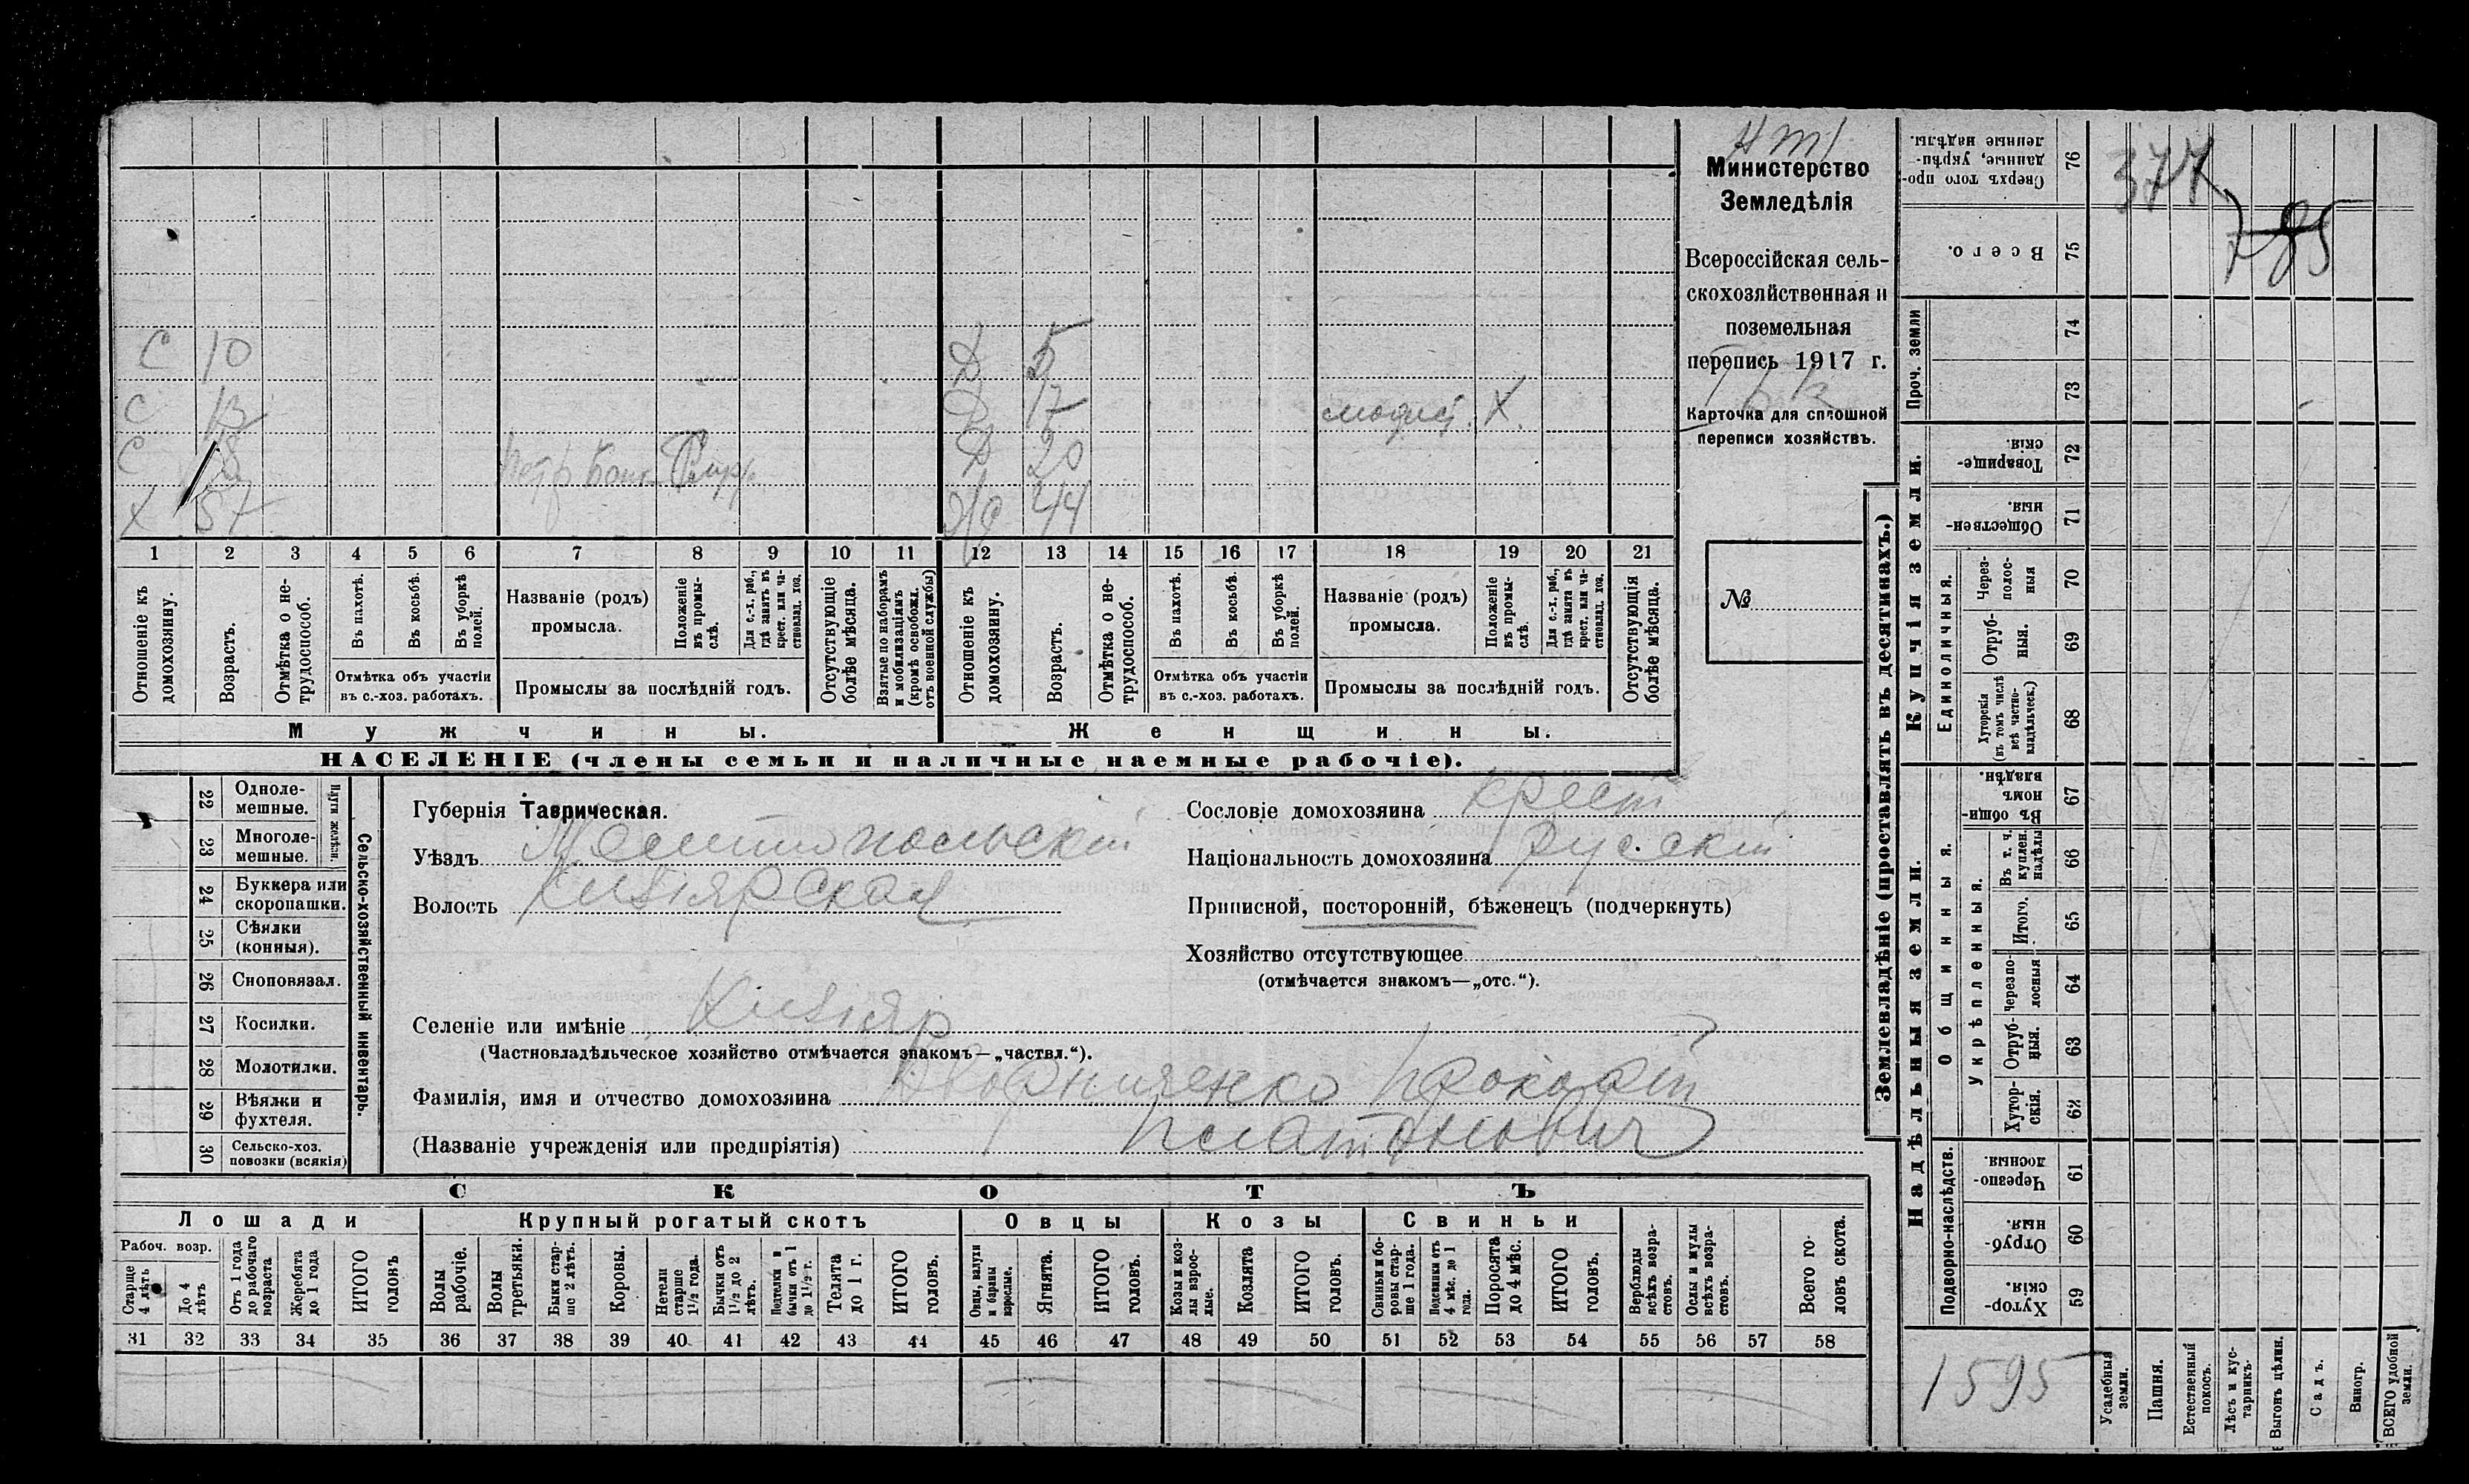 377
785
Министерство
Земледѣлія
Всероссійская сель-
скохозяйственная и
поземельная
перепись 1917 г.
Карточка для сплошной
переписи хозяйствъ.
№
С 10
С 13
С
Х 57
Д 5
Д 17 Х.
Д 20
Ж 44
1 2 3 4 5 6 7 8 9 10 11 12 13 14 15 16 17 18 19 20 21
Отношеніе къ домохозяину.
Возрастъ.
Отмѣтка о не-трудоспособ.
Въ пахотѣ.
Въ косьбѣ.
Въ уборкѣ полей.
Отмѣтка объ участіи
въ с.-хоз. работахъ.
Названіе (родъ)
промысла.
Положеніе въ промы-слѣ.
Для с.-х. раб., гдѣ занятъ въ крест. или ча-стновлад. хоз.
Промыслы за послѣдній годъ.
Отсутствующіе болѣе мѣсяца.
Взятые по наборамъ и мобилизаціямъ (кромѣ освобожд. отъ военной службы)
Отношеніе къ домохозяину.
Возрастъ.
Отмѣтка о не-трудоспособ.
Въ пахотѣ.
Въ косьбѣ.
Въ уборкѣ полей.
Отмѣтка объ участіи
въ с.-хоз. работахъ.
Названіе (родъ)
промысла.
Положеніе въ промы-слѣ.
Для с.-х. раб., гдѣ занята въ крест. или ча-стновлад. хоз.
Промыслы за послѣдній годъ.
Отсутствующія болѣе мѣсяца.
Мужчины.
Женщины.
НАСЕЛЕНІЕ (члены семьи и наличные наемные рабочіе).
22 Одноле-мешные.
23 Многоле-мешные.
Плуги желѣзн.
24 Буккера или скоропашки.
25 Сѣялки (конныя).
26 Сноповязал.
27 Косилки.
28 Молотилки.
29 Вѣялки и фухтеля.
30 Сельско-хоз. повозки (всякія)
Сельско-хозяйственный инвентарь.
Губернія Таврическая.
Уѣздъ Мелитопольскій
Волость Кизіярская
Селеніе или имѣніе Кизіяр
(Частновладѣльческое хозяйство отмѣчается знакомъ—„частвл.“).
Фамилія, имя и отчество домохозяина Прокофій
(Названіе учрежденія или предпріятія) Платонович
Сословіе домохозяина крест
Національность домохозяина русскій
Приписной, посторонній, бѣженецъ (подчеркнуть)
Хозяйство отсутствующее
(отмѣчается знакомъ—„отс.“).
СКОТЪ
Лошади
Крупный рогатый скотъ
Овцы
Козы
Свиньи
Рабоч. возр.
Старше 4 лѣтъ
До 4 лѣтъ
Отъ 1 года до рабочаго возраста
Жеребята до 1 года
ИТОГО головъ
Волы рабочіе.
Волы третьяки.
Быки стар-ше 2 лѣтъ.
Коровы.
Нетели старше 1½ года.
Бычки отъ 1½ до 2 лѣтъ.
Подтелки и бычки отъ 1 до 1½ г.
Телята до 1 г.
ИТОГО головъ.
Овцы, валухи и бараны взрослые.
Ягнята.
ИТОГО головъ.
Козы и коз-лы взрос-лые.
Козлята
ИТОГО головъ.
Свиньи и бо-ровы стар-ше 1 года.
Подсвинки отъ 4 мѣс. до 1 года.
Поросята до 4 мѣс.
ИТОГО головъ.
Верблюды всѣхъ возра-стовъ.
Ослы и мулы всѣхъ возра-стовъ.
Всего го-ловъ скота.
31 32 33 34 35 36 37 38 39 40 41 42 43 44 45 46 47 48 49 50 51 52 53 54 55 56 57 58
Землевладѣніе (проставлять въ десятинахъ.)
Надѣльныя земли.
Купчія земли.
Проч. земли
Подворно-наслѣдств.
Общинныя.
Укрѣпленныя.
Единоличныя.
76 Сверхъ того про-данные, укрѣп-ленные надѣлы.
75 Всего.
74
73
72 Товарище-скія.
71 Обществен-ныя.
70 Через-полос-ныя
69 Отруб-ныя.
68 Хуторскія (въ томъ числѣ всѣ частно-владѣльческ.)
67 Въ общин-номъ владѣн.
66 Въ т. ч. куплен. надѣлы
65 Итого.
64 Черезпо-лосныя
63 Отруб-ныя.
62 Хутор-скія.
61 Черезпо-лосныя.
60 Отруб-ныя.
59 Хутор-скія.
1595
Усадебныя земли.
Пашня.
Естественный покосъ.
Лѣсъ и кус-тарникъ.
Выгонъ цѣлин.
Садъ.
Виногр.
ВСЕГО удобной земли.